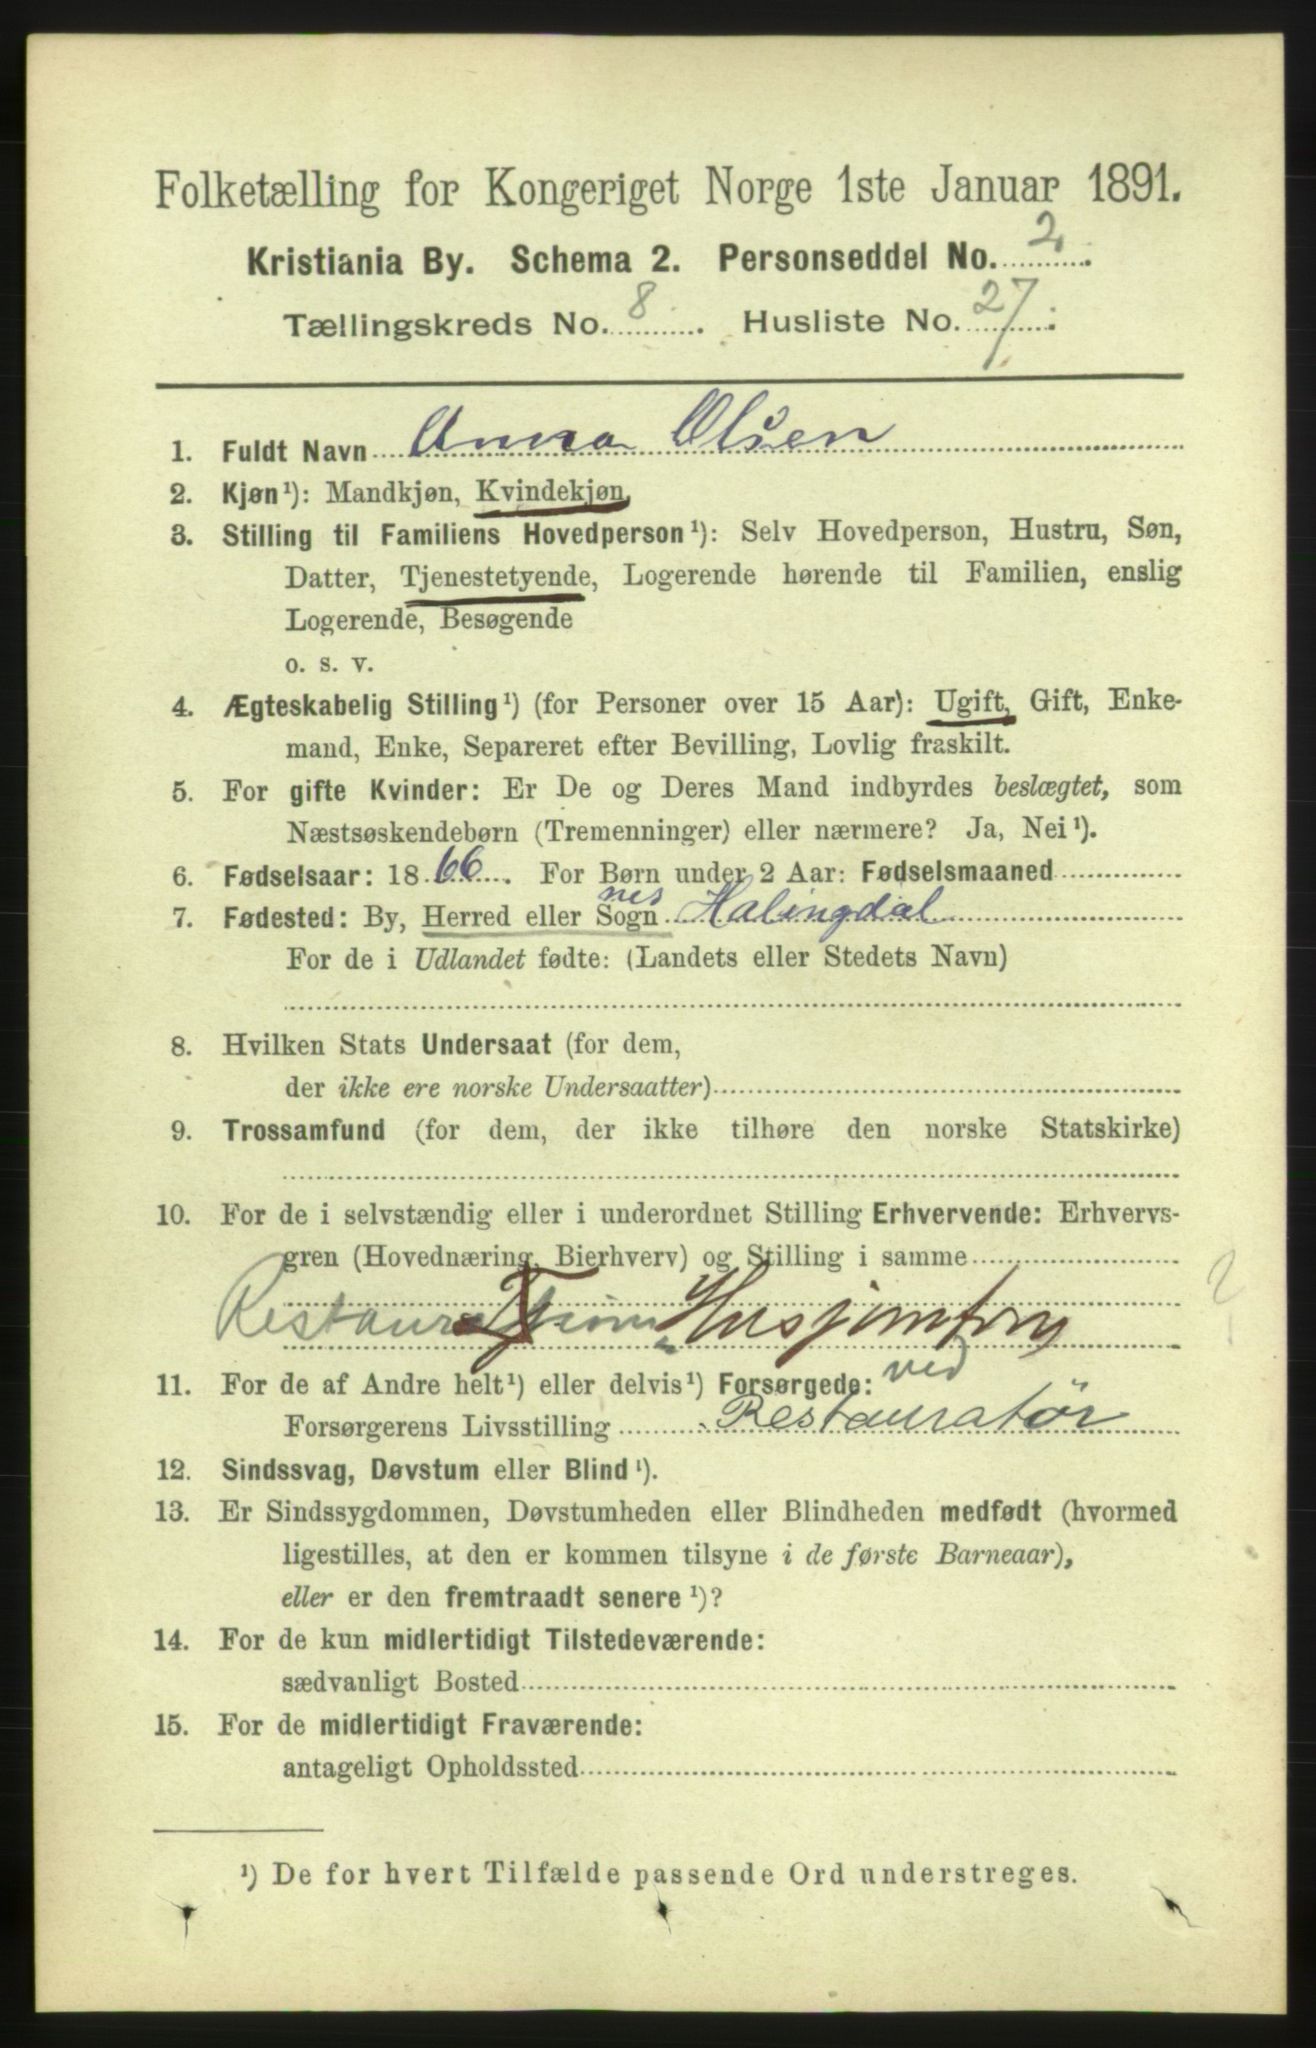 Folketælling for Kongeriget Norge 1ste Januar 1891.
Kristiania By. Schema 2. Personseddel No. 2.
Tællingskreds No. 8. Husliste No. 27.
1. Fuldt Navn Anna Olsen
2. Kjøn¹): Mandkjøn, Kvindekjøn,
3. Stilling til Familiens Hovedperson¹): Selv Hovedperson, Hustru, Søn,
Datter, Tjenestetyende, Logerende hørende til Familien, enslig
Logerende, Besøgende
o. s. v.
4. Ægteskabelig Stilling¹) (for Personer over 15 Aar): Ugift, Gift, Enke-
mand, Enke, Separeret efter Bevilling, Lovlig fraskilt.
5. For gifte Kvinder: Er De og Deres Mand indbyrdes beslægtet, som
Næstsøskendebørn (Tremenninger) eller nærmere? Ja, Nei¹).
6. Fødselsaar: 1866. For Børn under 2 Aar: Fødselsmaaned
7. Fødested: By, Herred eller Sogn nes Halingdal
For de i Udlandet fødte: (Landets eller Stedets Navn)
8. Hvilken Stats Undersaat (for dem,
der ikke ere norske Undersaatter)
9. Trossamfund (for dem, der ikke tilhøre den norske Statskirke)
10. For de i selvstændig eller i underordnet Stilling Erhvervende: Erhvervs-
gren (Hovednæring, Bierhverv) og Stilling i samme
Husjomfru
11. For de af Andre helt¹) eller delvis¹) Forsørgede: ved
Forsørgerens Livsstilling Restauratør
12. Sindssvag, Døvstum eller Blind¹).
13. Er Sindssygdommen, Døvstumheden eller Blindheden medfødt (hvormed
ligestilles, at den er kommen tilsyne i de første Barneaar),
eller er den fremtraadt senere¹)?
14. For de kun midlertidigt Tilstedeværende:
sædvanligt Bosted
15. For de midlertidigt Fraværende:
antageligt Opholdssted
¹) De for hvert Tilfælde passende Ord understreges.